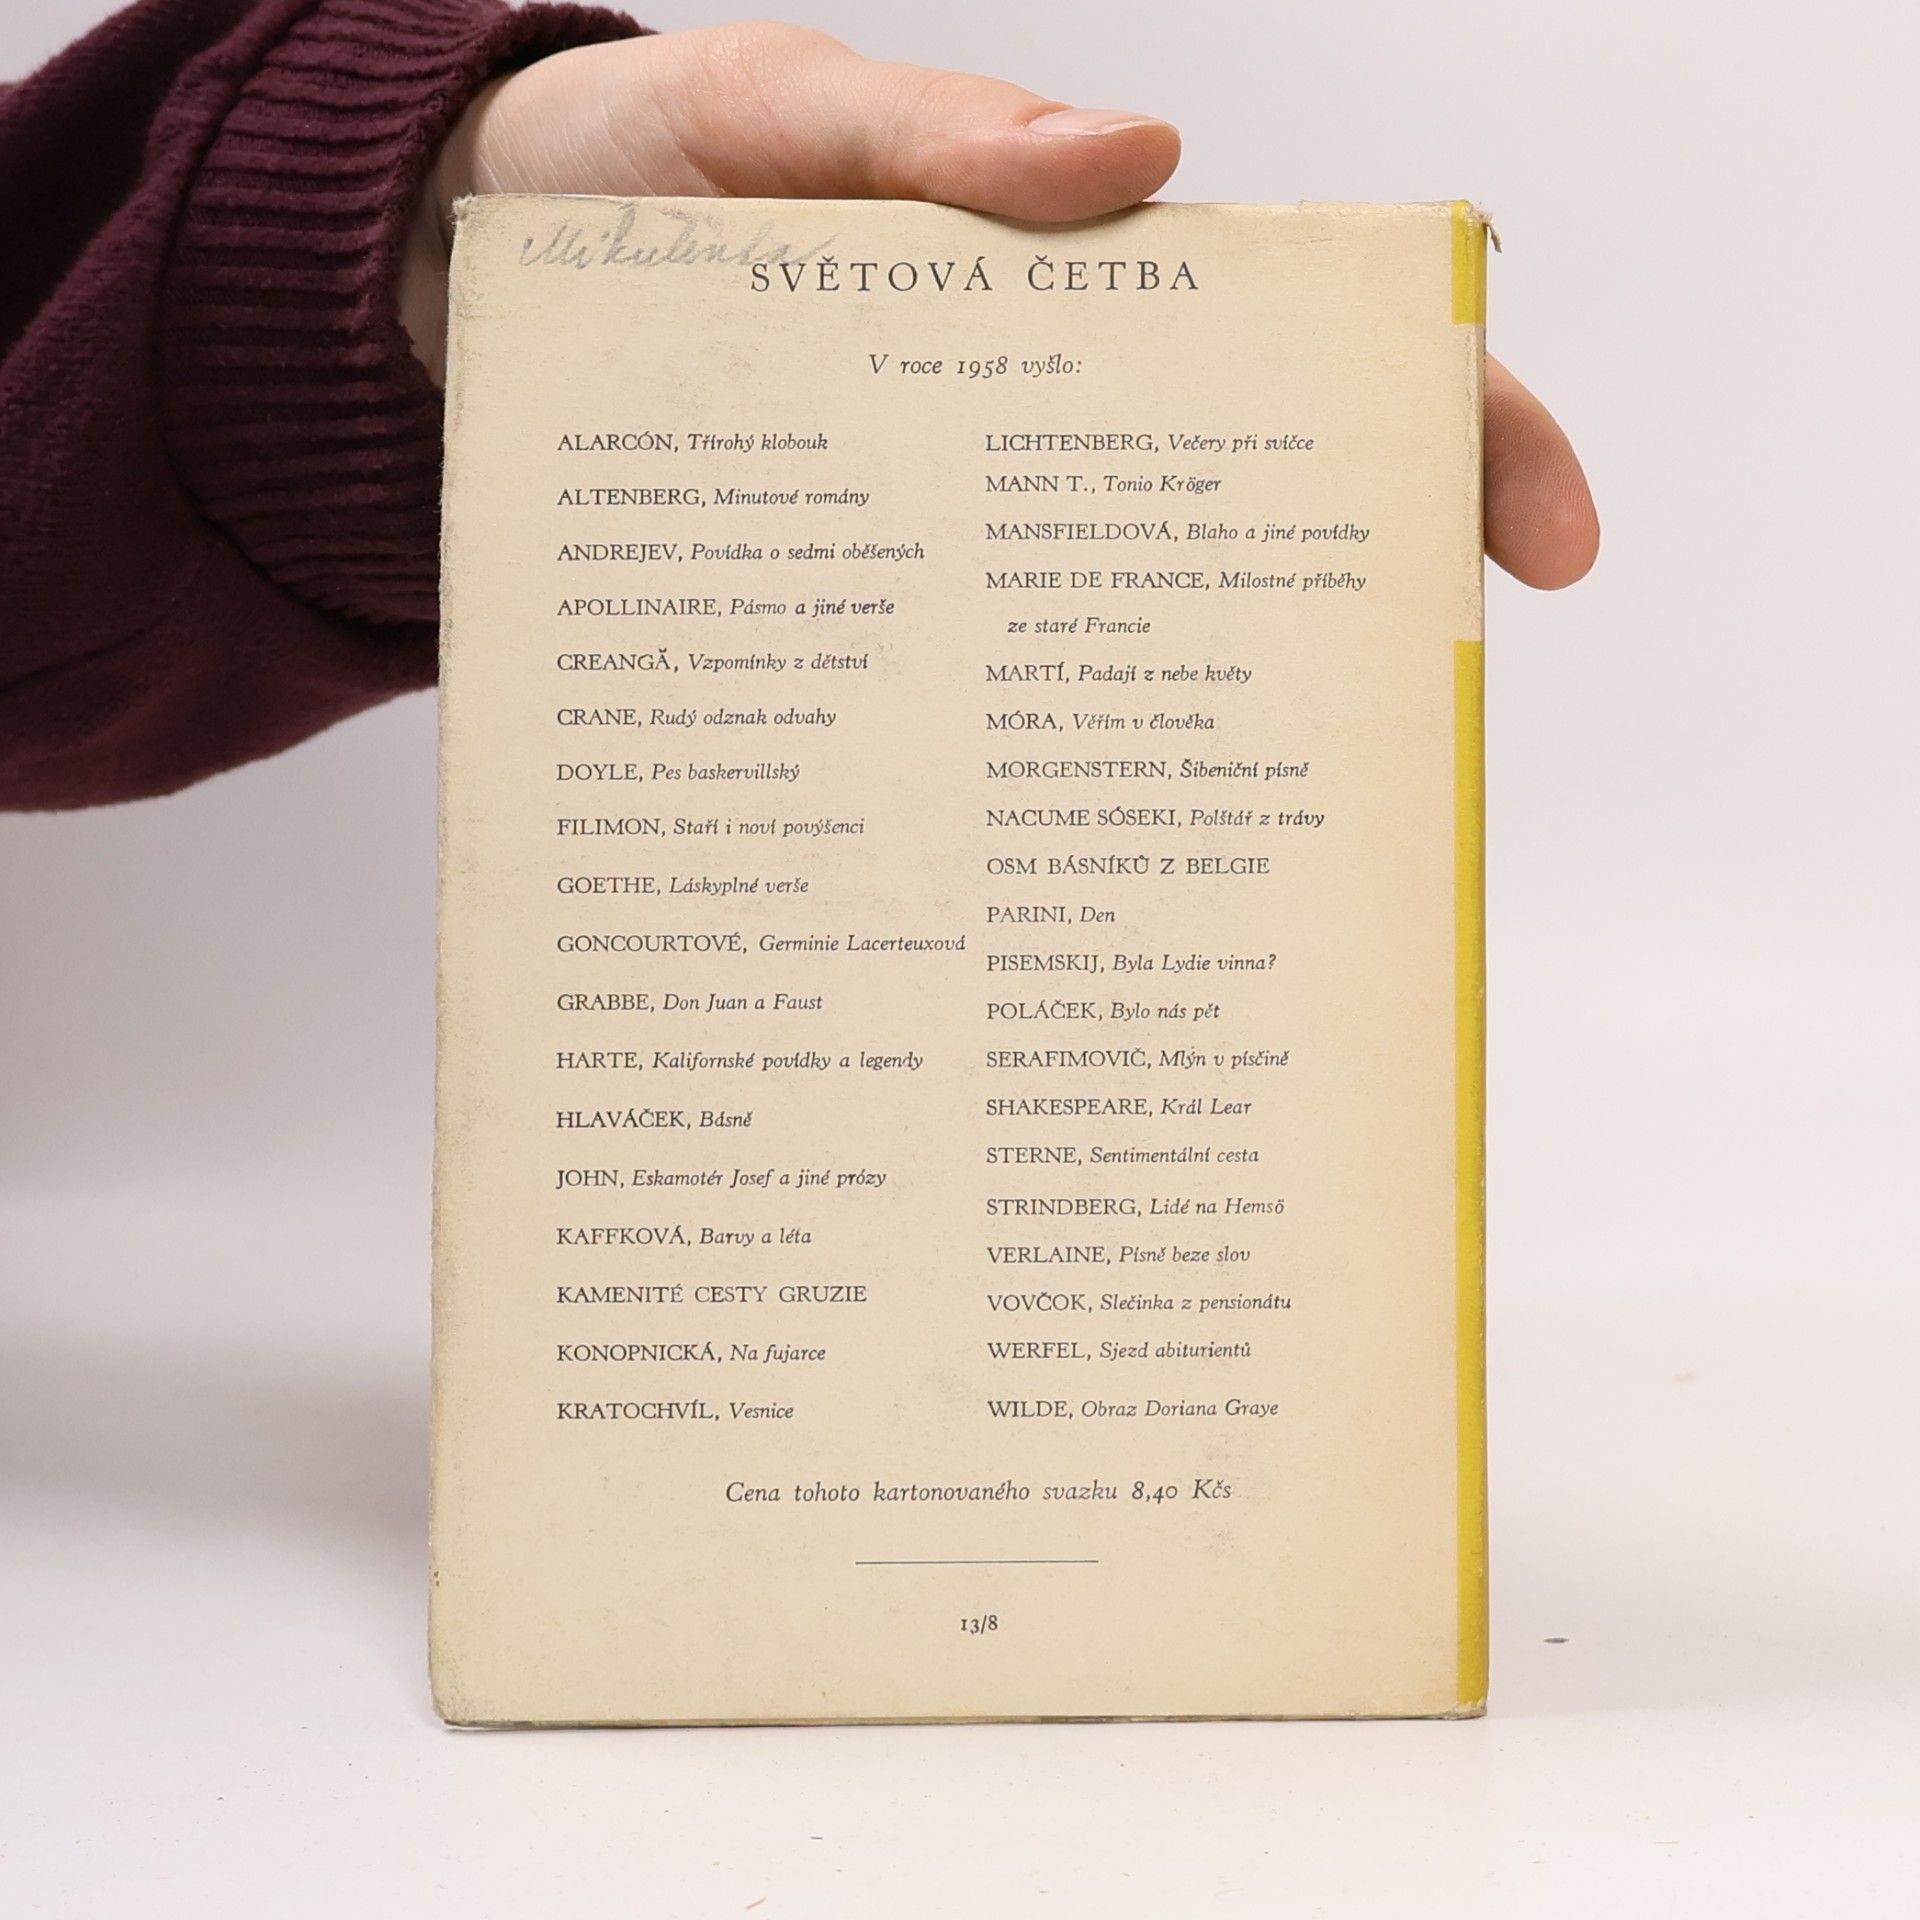 SVĚTOVÁ ČETBA
V roce 1958 vyšlo:
ALARCÓN, Třírohý klobouk
ALTENBERG, Minutové romány
ANDREJEV, Povídka o sedmi oběšených
APOLLINAIRE, Pásmo a jiné verše
CREANGĂ, Vzpomínky z dětství
CRANE, Rudý odznak odvahy
DOYLE, Pes baskervillský
FILIMON, Staří i noví povýšenci
GOETHE, Láskyplné verše
GONCOURTOVÉ, Germinie Lacerteuxová
GRABBE, Don Juan a Faust
HARTE, Kalifornské povídky a legendy
HLAVÁČEK, Básně
JOHN, Eskamotér Josef a jiné prózy
KAFFKOVÁ, Barvy a léta
KAMENITÉ CESTY GRUZIE
KONOPNICKÁ, Na fujarce
KRATOCHVÍL, Vesnice
LICHTENBERG, Večery při svíčce
MANN T., Tonio Kröger
MANSFIELDOVÁ, Blaho a jiné povídky
MARIE DE FRANCE, Milostné příběhy
ze staré Francie
MARTÍ, Padají z nebe květy
MÓRA, Věřím v člověka
MORGENSTERN, Šibeniční písně
NACUME SÓSEKI, Polštář z trávy
OSM BÁSNÍKŮ Z BELGIE
PARINI, Den
PISEMSKIJ, Byla Lydie vinna?
POLÁČEK, Bylo nás pět
SERAFIMOVIČ, Mlýn v písčině
SHAKESPEARE, Král Lear
STERNE, Sentimentální cesta
STRINDBERG, Lidé na Hemsö
VERLAINE, Písně beze slov
VOVČOK, Slečinka z pensionátu
WERFEL, Sjezd abiturientů
WILDE, Obraz Doriana Graye
Cena tohoto kartonovaného svazku 8,40 Kčs
13/8